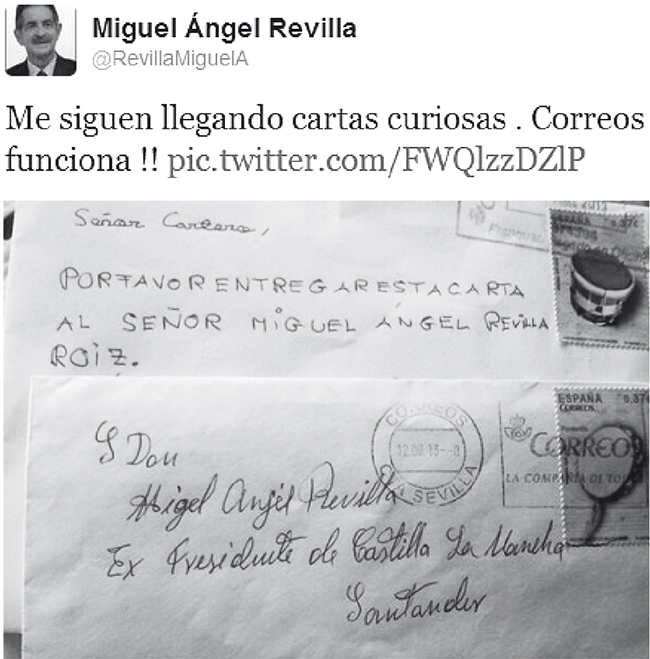 Miguel Ángel Revilla
@RevillaMiguelA
Me siguen llegando cartas curiosas . Correos
funciona !! pic.twitter.com/FWQlzzDZlP
Señor Cartero,
POR FAVOR ENTREGAR ÉSTA CARTA
AL SEÑOR MIGUEL ANGEL REVILLA
ROIZ.
ESPAÑA 0,37€
CORREOS
12.09.13
SEVILLA
ESPAÑA 0,37
CORREOS
CORREOS
LA COMPAÑIA DE TODOS
S Don
Migel Angel Revilla
Ex Presidente de Castilla La Mancha
Santander